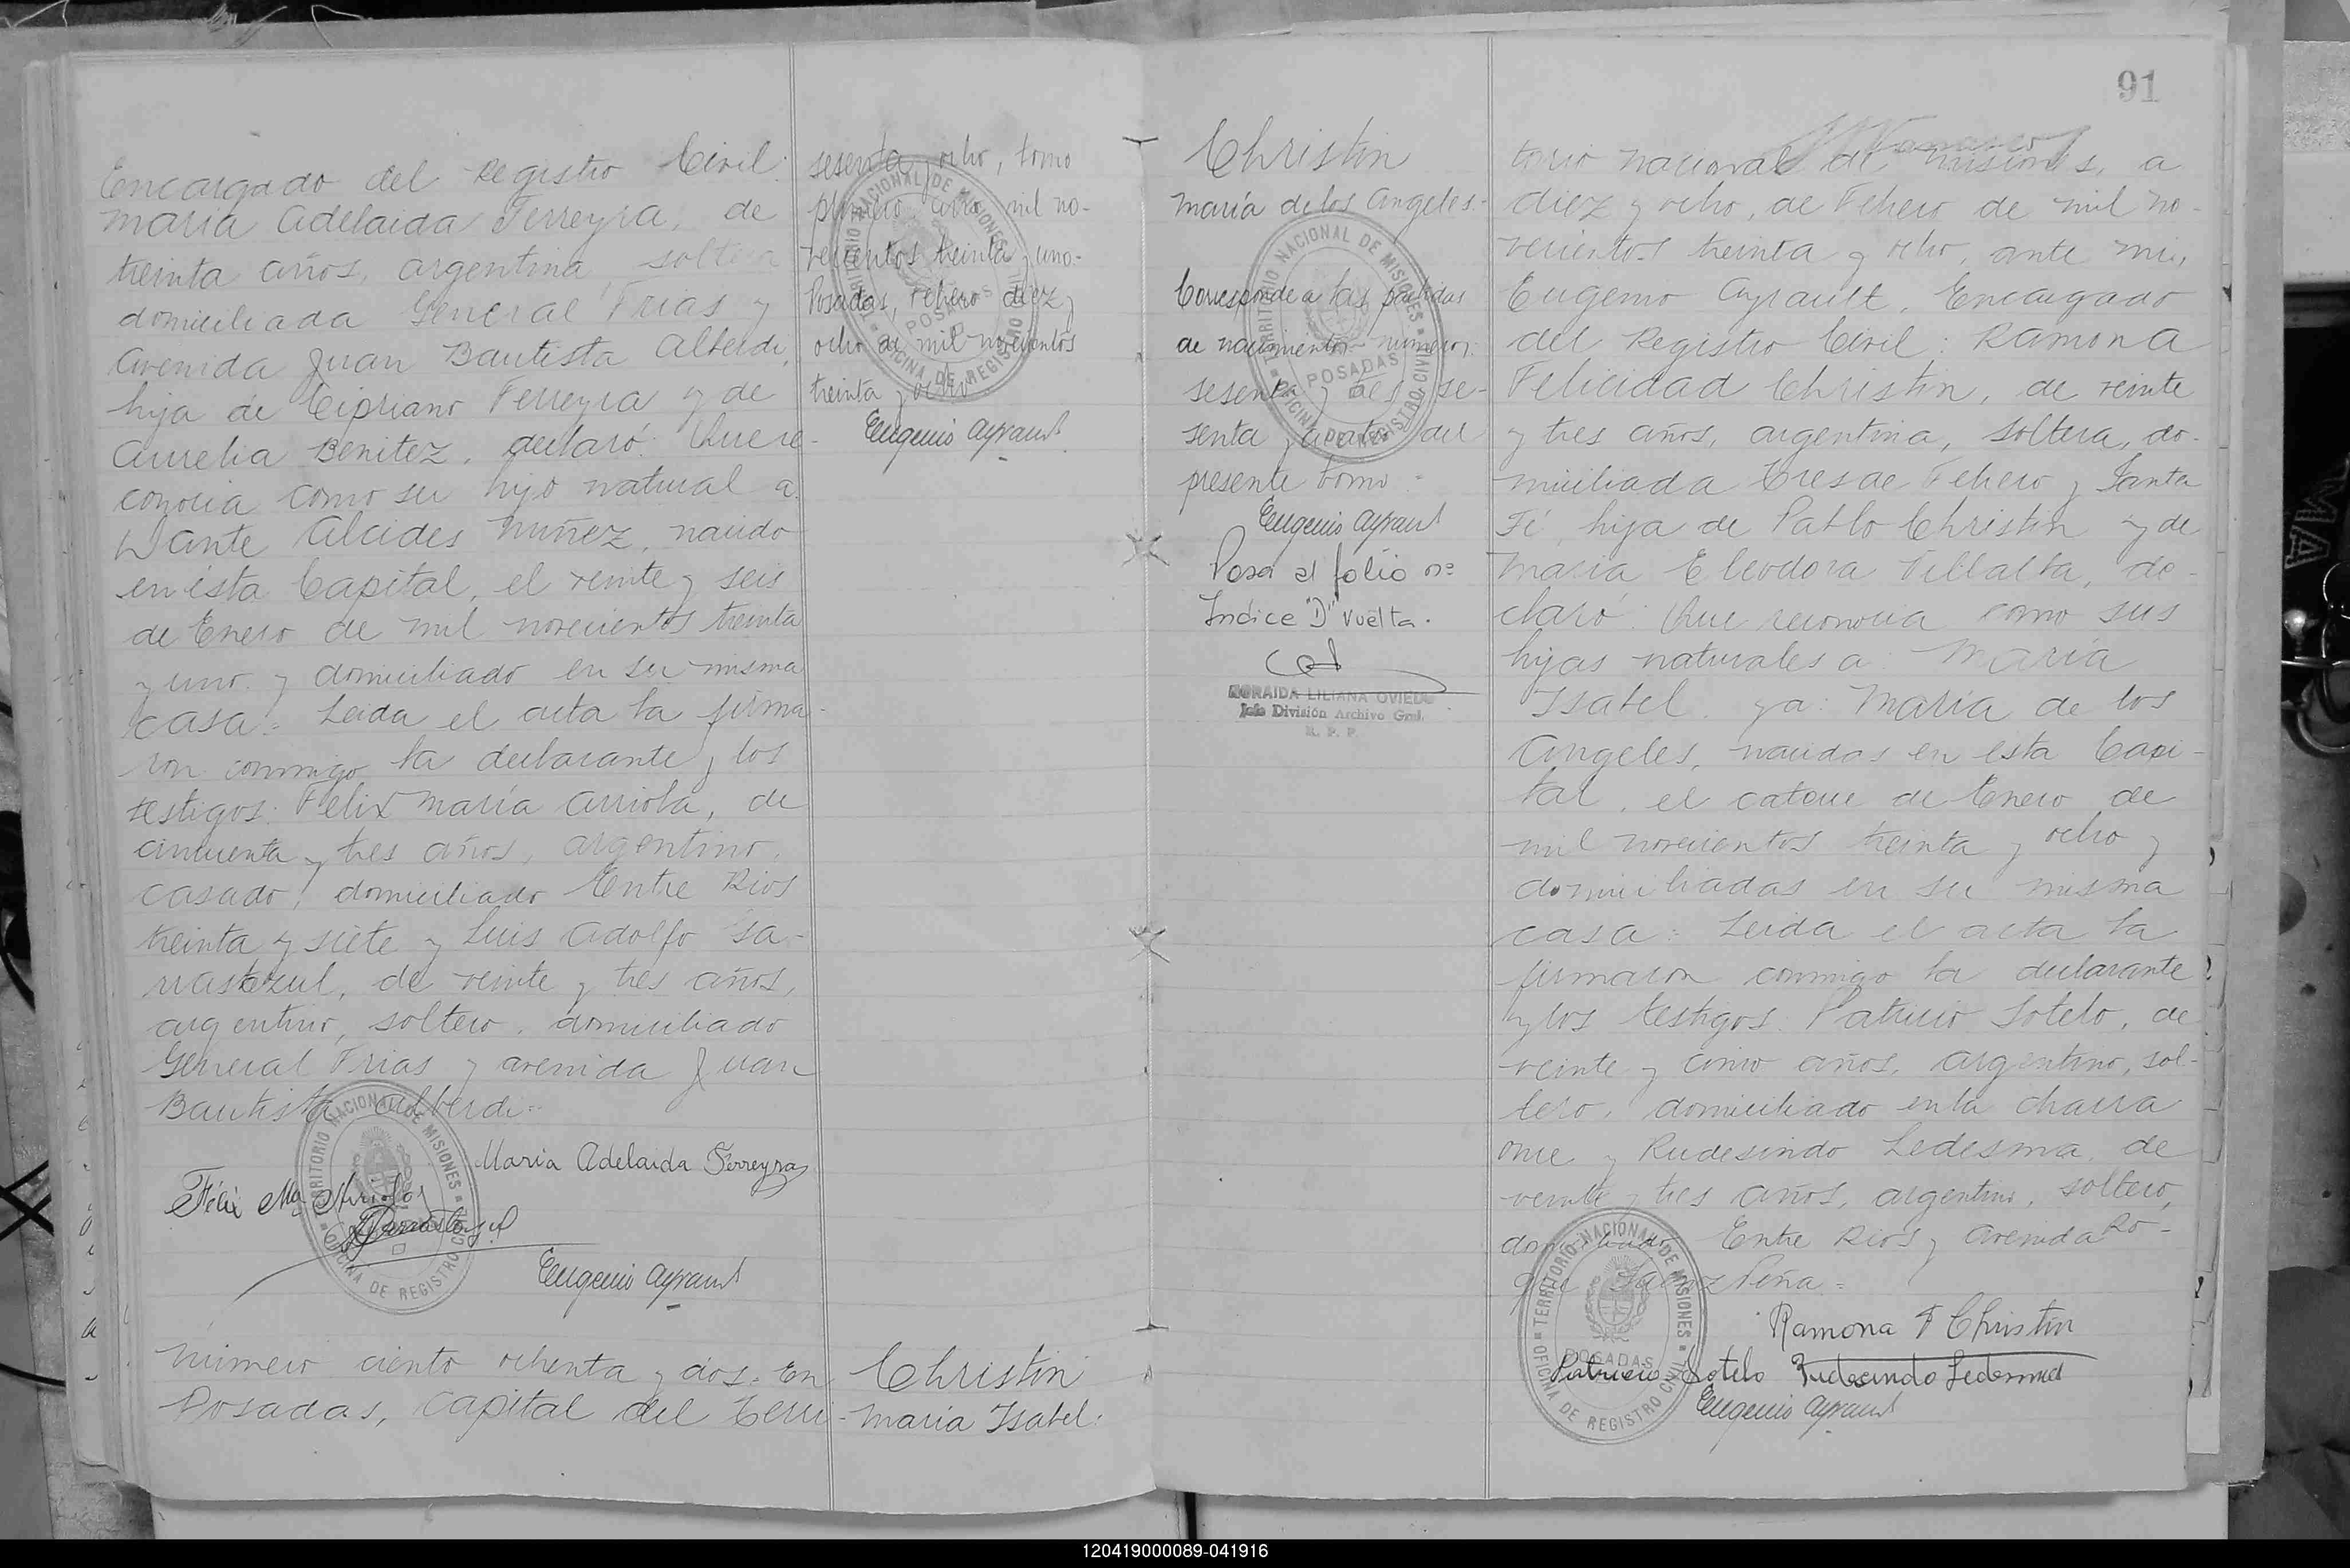 Encargado del Registro Civil:
María Adelaida Ferreyra, de
treinta años, argentina, soltera
domiciliada General Frias y
Avenida Juan Bautista Alberdi,
hija de Cipriano Ferreyra y de
Aurelia Benitez, declaró: Que re-
conocia como su hijo natural a:
Dante Alcides Nuñez, nacido
en ésta Capital, el veinte y seis
de Enero de mil novecientos treinta
y uno y domiciliado en su misma
casa.= Leida el acta la firma-
ron conmigo la declarante y los
testigos: Felix María Arriola, de
cincuenta y tres años, argentino,
casado, domiciliado Entre Rios
treinta y siete y Luis Adolfo Sa-
de veinte y tres años,
argentino, soltero, domiciliado
General Frias y avenida Juan
Bautista Alberdi=
Maria Adelaida Ferreyra
Félix Ma. Arriola
Eugenio Ayrault
Número ciento ochenta y dos. En
Posadas, Capital del Terri-
sesenta y ocho, tomo
primero, año mil no-
vecientos treinta y uno.-
Posadas, Febrero diez y
ocho de mil novecientos
treinta y ocho
Eugenio Ayrault
TERRITORIO NACIONAL DE MISIONES
POSADAS
OFICINA DE REGISTRO CIVIL
Christin
María Isabel.
91
Christin
María de los Angeles.-
Corresponde a las partidas
de nacimientos números:
sesenta y tres y se-
senta y cuatro del
presente tomo.=
Eugenio Ayrault
Pasa al folio nº
Indice "D" vuelta.
ZORAIDA LILIANA OVIEDO
Jefe División Archivo Gral.
R. P. P.
torio nacional de Misiones, a
diez y ocho, de Febrero de mil no-
vecientos treinta y ocho, ante mi,
Eugenio Ayrault, Encargado
del Registro Civil: Ramona
Felicidad Christin, de veinte
y tres años, argentina, soltera, do-
miciliada Tres de Febrero y Santa
Fé, hija de Pablo Christin y de
María Eleodora Villalta, de-
claró: Que reconocia como sus
hijas naturales a: María
Isabel y a: María de los
Angeles, nacidas en esta Capi-
tal, el catorce de Enero de
mil novecientos treinta y ocho y
domiciliadas en su misma
casa: Leida el acta la
firmaron conmigo la declarante
y los testigos: Patricio Sotelo, de
veinte y cinco años, argentino, sol-
tero, domiciliado en la chacra
once y Rudesindo Ledesma, de
veinte y tres años, argentino, soltero,
domiciliado Entre Rios y avenida Ro-
que Saenz Peña=
Ramona F Christin
Patricio Sotelo Rudesindo Ledesma
Eugenio Ayrault
TERRITORIO NACIONAL DE MISIONES
POSADAS
OFICINA DE REGISTRO CIVIL
120419000089-041916